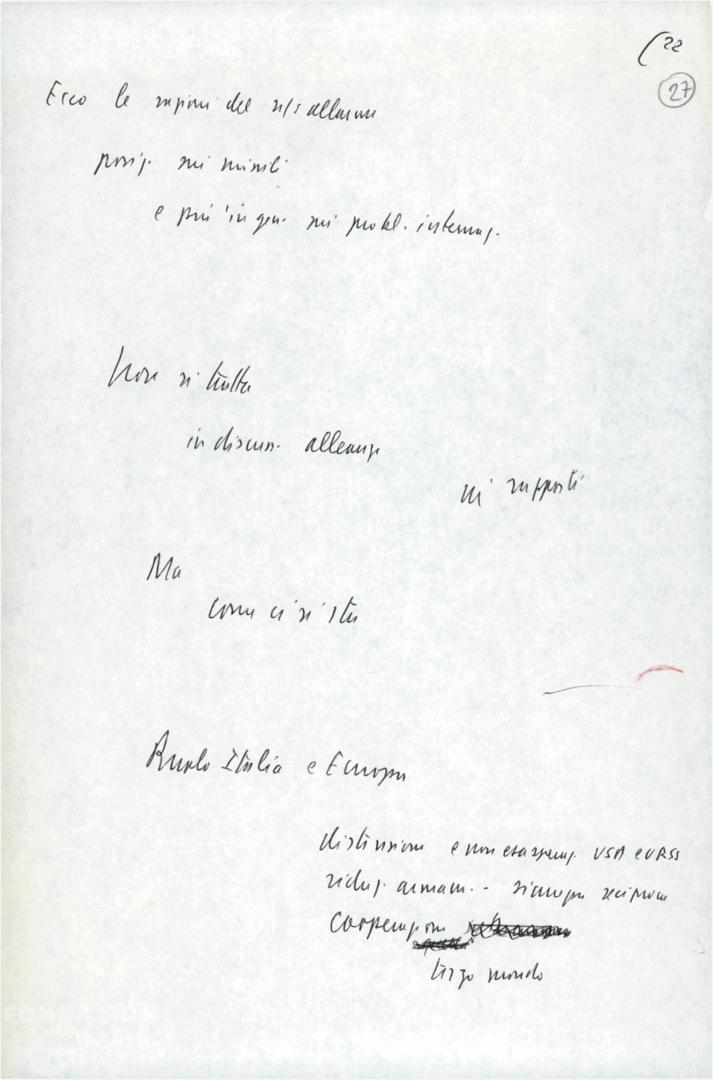 22
27
Ecco le ragioni del ns allarme
posiz. sui missili
e più in gen. sui probl. internaz.
Non si tratta
in discuss. alleanze
rapporti
Ma
come ci si sta
Ruolo Italia e Europa
distensione e non esasperaz. USA e URSS
riduz. armam. - sicurezza reciproca
Cooperazione
terzo mondo